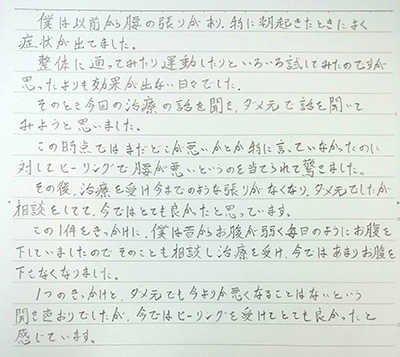 僕は以前から腰の張りがあり、特に朝起きたときによく
症状が出てました。
整体に通ってみたり運動したりといろいろ試してみたのですが
思ったよりも効果が出ない日々でした。
そのとき今回の治療の話を聞き、ダメ元で話を聞いて
みようと思いました。
この時点ではまだどこが悪いかとか特に言っていなかったのに
対してヒーリングで腰が悪いというのを当てられて驚きました。
その後、治療を受け今までのような張りがなくなり、ダメ元でしたが
相談をしてて、今ではとても良かったと思っています。
この1件をきっかけに、僕は昔からお腹が弱く毎日のようにお腹を
下していましたのでそのことも相談し治療を受け、今ではあまりお腹を
下さなくなりました。
1つのきっかけと、ダメ元でも今よりか悪くなることはないという
開き直おりでしたが、今ではヒーリングを受けてとても良かったと
感じています。